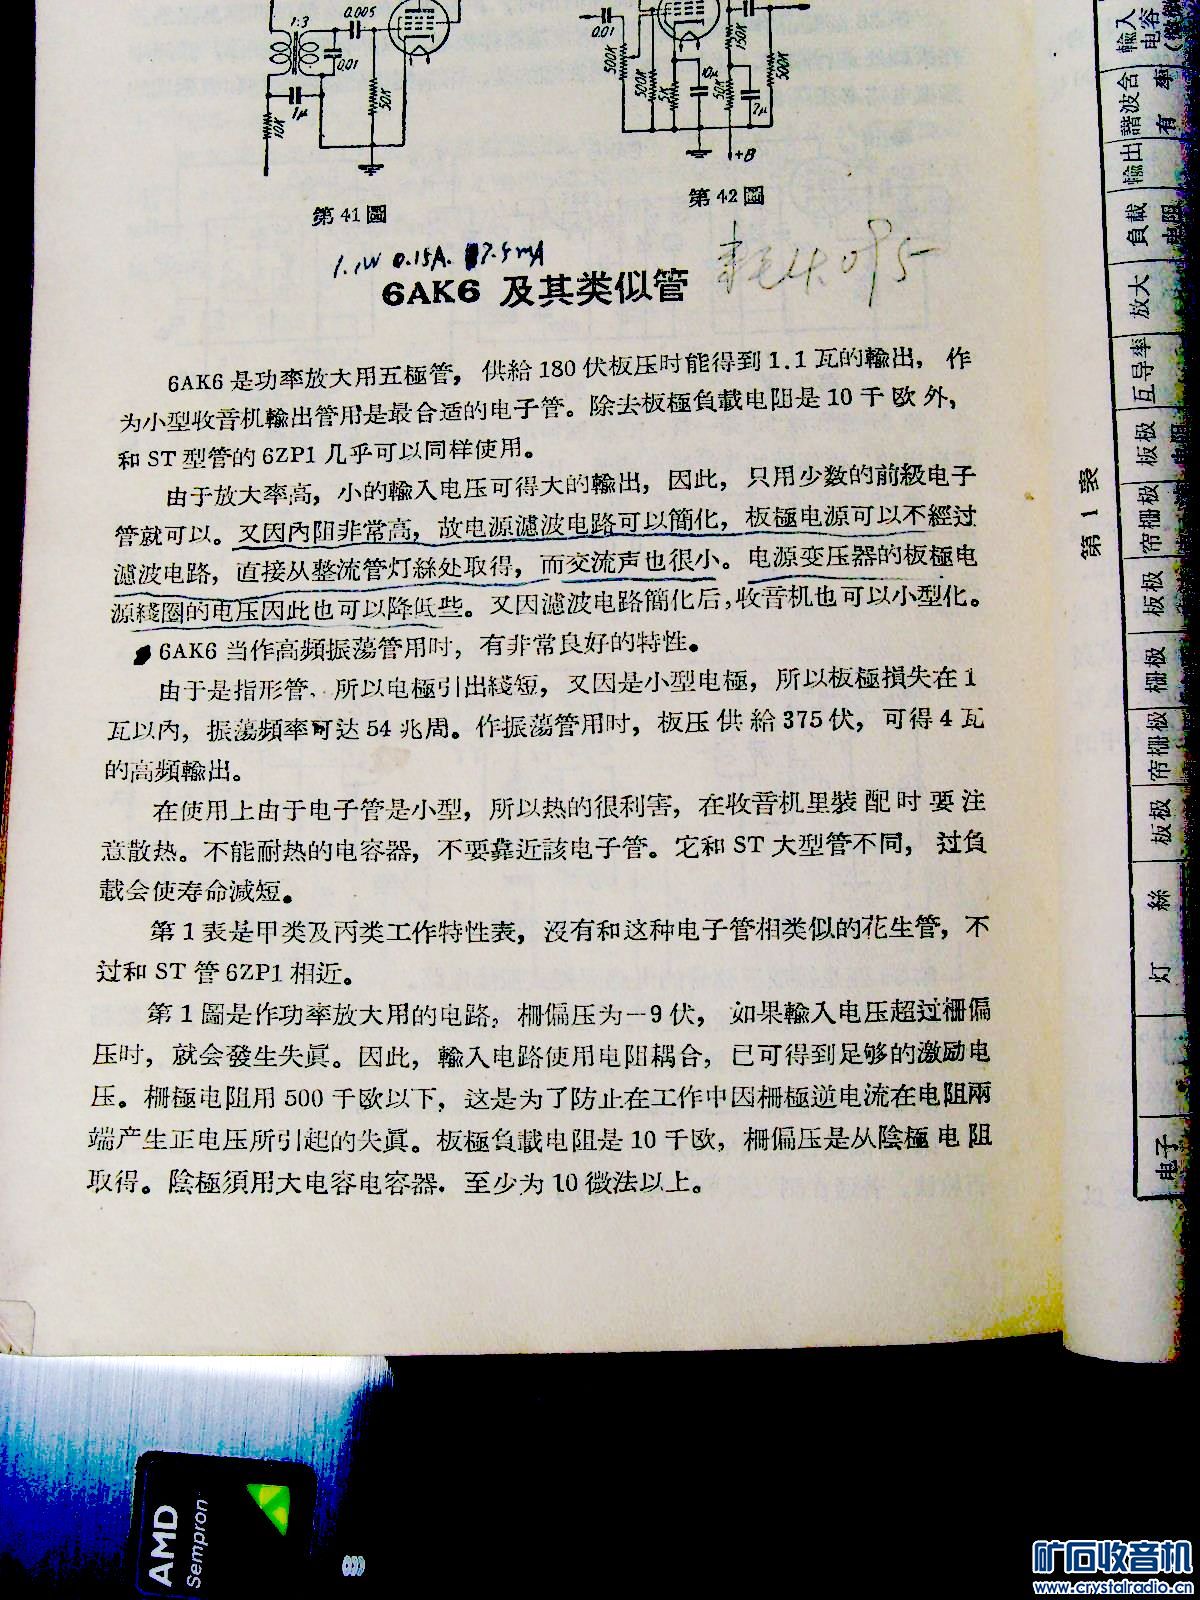 1:3
0.005
0.01
1μ
10K
50K
第 41 圖
0.01
500K
500K
5K
10μ
50K
150K
2μ
500K
+B
第 42 圖
1.1W 0.15A.
6AK6 及其类似管
6AK6 是功率放大用五極管，供給 180 伏板压时能得到 1.1 瓦的輸出，作
为小型收音机輸出管用是最合适的电子管。除去板極負載电阻是 10 千欧外，
和 ST 型管的 6ZP1 几乎可以同样使用。
由于放大率高，小的輸入电压可得大的輸出，因此，只用少数的前級电子
管就可以。又因內阻非常高，故电源滤波电路可以簡化，板極电源可以不經过
滤波电路，直接从整流管灯絲处取得，而交流声也很小。电源变压器的板極电
源綫圈的电压因此也可以降低些。又因滤波电路簡化后，收音机也可以小型化。
6AK6 当作高頻振蕩管用时，有非常良好的特性。
由于是指形管，所以电極引出綫短，又因是小型电極，所以板極損失在 1
瓦以內，振蕩頻率可达 54 兆周。作振蕩管用时，板压供給 375 伏，可得 4 瓦
的高頻輸出。
在使用上由于电子管是小型，所以热的很利害，在收音机里裝配时要注
意散热。不能耐热的电容器，不要靠近該电子管。它和 ST 大型管不同，过負
載会使寿命減短。
第 1 表是甲类及丙类工作特性表，沒有和这种电子管相类似的花生管，不
过和 ST 管 6ZP1 相近。
第 1 圖是作功率放大用的电路，柵偏压为－9 伏，如果輸入电压超过柵偏
压时，就会發生失眞。因此，輸入电路使用电阻耦合，已可得到足够的激励电
压。柵極电阻用 500 千欧以下，这是为了防止在工作中因柵極逆电流在电阻兩
端产生正电压所引起的失眞。板極負載电阻是 10 千欧，柵偏压是从陰極电阻
取得。陰極須用大电容电容器，至少为 10 微法以上。
第 1 表
輸入
电容
諧波含
有 率
輸出
負載
电阻
放大
互导率
板极
电阻
帘柵极
板极
柵极
帘柵极
板极
灯 絲
电子
AMD
Sempron
矿石收音机
www.crystalradio.cn